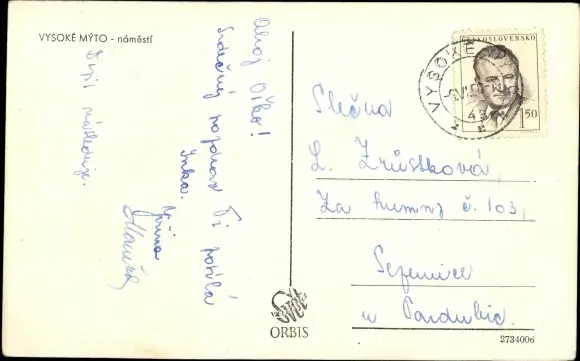 VYSOKÉ MÝTO - náměstí
Ahoj Oľko!
Srdečný pozdrav Ti posílá
Inka. Jiřina
Dopis následuje.
ČESKOSLOVENSKO
1 50
VYSOKÉ
Slečna
L. Zrůstková,
Za humny č. 103,
Sezemice
u Pardubic.
Svět
ORBIS
2734006